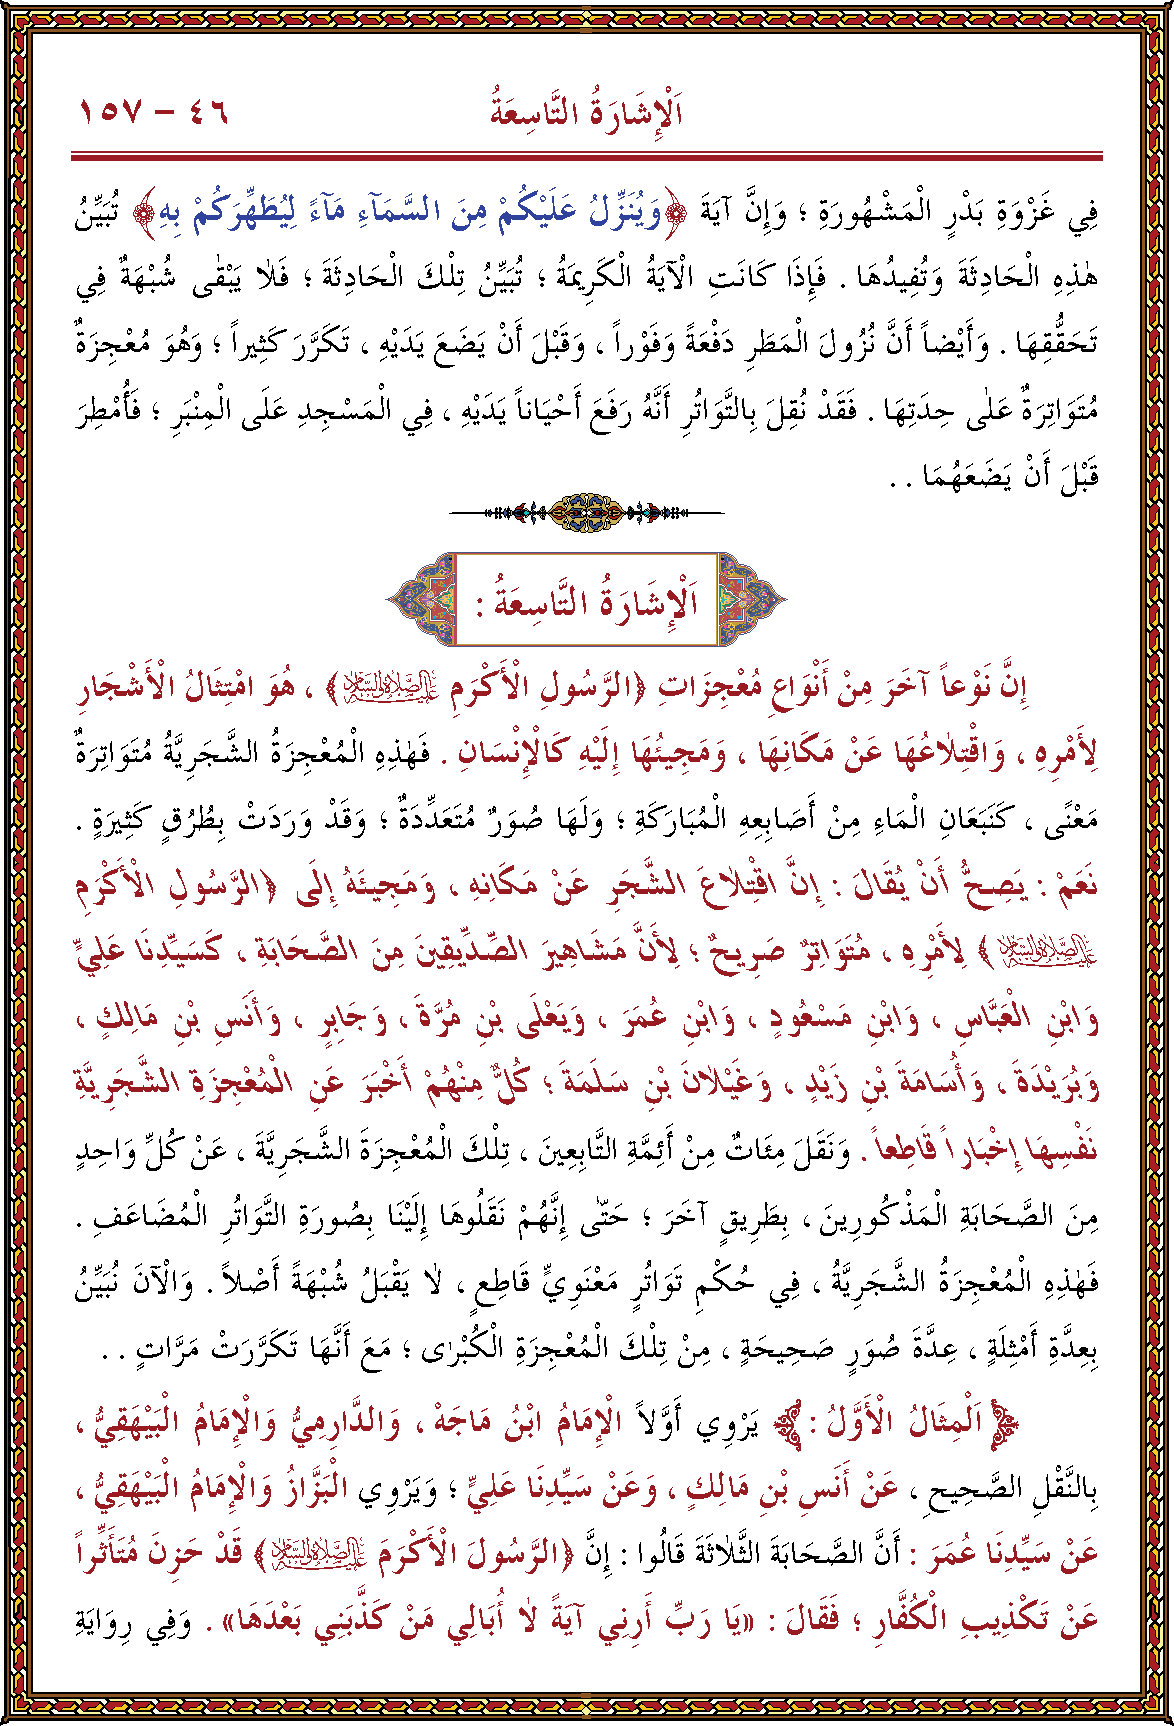 اَلْإِشَارَةُ التَّاسِعَةُ ٤٦ - ١٥٧
فِي غَزْوَةِ بَدْرٍ الْمَشْهُورَةِ ؛ وَإِنَّ آيَةَ ﴿وَيُنَزِّلُ عَلَيْكُمْ مِنَ السَّمَآءِ مَآءً لِيُطَهِّرَكُمْ بِهِ﴾ تُبَيِّنُ
هٰذِهِ الْحَادِثَةَ وَتُفِيدُهَا . فَإِذَا كَانَتِ الْآيَةُ الْكَرِيمَةُ ؛ تُبَيِّنُ تِلْكَ الْحَادِثَةَ ؛ فَلَا يَبْقٰى شُبْهَةٌ فِي
تَحَقُّقِهَا . وَأَيْضاً أَنَّ نُزُولَ الْمَطَرِ دَفْعَةً وَفَوْراً ، وَقَبْلَ أَنْ يَضَعَ يَدَيْهِ ، تَكَرَّرَ كَثِيراً ؛ وَهُوَ مُعْجِزَةٌ
مُتَوَاتِرَةٌ عَلٰى حِدَتِهَا . فَقَدْ نُقِلَ بِالتَّوَاتُرِ أَنَّهُ رَفَعَ أَحْيَاناً يَدَيْهِ ، فِي الْمَسْجِدِ عَلَى الْمِنْبَرِ ؛ فَأُمْطِرَ
قَبْلَ أَنْ يَضَعَهُمَا . .
اَلْإِشَارَةُ التَّاسِعَةُ :
إِنَّ نَوْعاً آخَرَ مِنْ أَنْوَاعِ مُعْجِزَاتِ ﴿الرَّسُولِ الْأَكْرَمِ عَلَيْهِ الصَّلَاةُ وَالسَّلَامُ﴾ ، هُوَ امْتِثَالُ الْأَشْجَارِ
لِأَمْرِهِ ، وَاقْتِلَاعُهَا عَنْ مَكَانِهَا ، وَمَجِيئُهَا إِلَيْهِ كَالْإِنْسَانِ . فَهٰذِهِ الْمُعْجِزَةُ الشَّجَرِيَّةُ مُتَوَاتِرَةٌ
مَعْنًى ، كَنَبَعَانِ الْمَاءِ مِنْ أَصَابِعِهِ الْمُبَارَكَةِ ؛ وَلَهَا صُوَرٌ مُتَعَدِّدَةٌ ؛ وَقَدْ وَرَدَتْ بِطُرُقٍ كَثِيرَةٍ .
نَعَمْ : يَصِحُّ أَنْ يُقَالَ : إِنَّ اقْتِلَاعَ الشَّجَرِ عَنْ مَكَانِهِ ، وَمَجِيئَهُ إِلَى ﴿الرَّسُولِ الْأَكْرَمِ
عَلَيْهِ الصَّلَاةُ وَالسَّلَامُ﴾ لِأَمْرِهِ ، مُتَوَاتِرٌ صَرِيحٌ ؛ لِأَنَّ مَشَاهِيرَ الصِّدِّيقِينَ مِنَ الصَّحَابَةِ ، كَسَيِّدِنَا عَلِيٍّ
وَابْنِ الْعَبَّاسِ ، وَابْنِ مَسْعُودٍ ، وَابْنِ عُمَرَ ، وَيَعْلَى بْنِ مُرَّةَ ، وَجَابِرٍ ، وَأَنَسِ بْنِ مَالِكٍ ،
وَبُرَيْدَةَ ، وَأُسَامَةَ بْنِ زَيْدٍ ، وَغَيْلَانَ بْنِ سَلَمَةَ ؛ كُلٌّ مِنْهُمْ أَخْبَرَ عَنِ الْمُعْجِزَةِ الشَّجَرِيَّةِ
نَفْسِهَا إِخْبَاراً قَاطِعاً . وَنَقَلَ مِئَاتٌ مِنْ أَئِمَّةِ التَّابِعِينَ ، تِلْكَ الْمُعْجِزَةَ الشَّجَرِيَّةَ ، عَنْ كُلِّ وَاحِدٍ
مِنَ الصَّحَابَةِ الْمَذْكُورِينَ ، بِطَرِيقٍ آخَرَ ؛ حَتّٰى إِنَّهُمْ نَقَلُوهَا إِلَيْنَا بِصُورَةِ التَّوَاتُرِ الْمُضَاعَفِ .
فَهٰذِهِ الْمُعْجِزَةُ الشَّجَرِيَّةُ ، فِي حُكْمِ تَوَاتُرٍ مَعْنَوِيٍّ قَاطِعٍ ، لَا يَقْبَلُ شُبْهَةً أَصْلاً . وَالْآنَ نُبَيِّنُ
بِعِدَّةِ أَمْثِلَةٍ ، عِدَّةَ صُوَرٍ صَحِيحَةٍ ، مِنْ تِلْكَ الْمُعْجِزَةِ الْكُبْرٰى ؛ مَعَ أَنَّهَا تَكَرَّرَتْ مَرَّاتٍ . .
﴿اَلْمِثَالُ الْأَوَّلُ :﴾ يَرْوِي أَوَّلاً الْإِمَامُ ابْنُ مَاجَهْ ، وَالدَّارِمِيُّ وَالْإِمَامُ الْبَيْهَقِيُّ ،
بِالنَّقْلِ الصَّحِيحِ ، عَنْ أَنَسِ بْنِ مَالِكٍ ، وَعَنْ سَيِّدِنَا عَلِيٍّ ؛ وَيَرْوِي الْبَزَّازُ وَالْإِمَامُ الْبَيْهَقِيُّ ،
عَنْ سَيِّدِنَا عُمَرَ : أَنَّ الصَّحَابَةَ الثَّلَاثَةَ قَالُوا : إِنَّ ﴿الرَّسُولَ الْأَكْرَمَ عَلَيْهِ الصَّلَاةُ وَالسَّلَامُ﴾ قَدْ حَزِنَ مُتَأَثِّراً
عَنْ تَكْذِيبِ الْكُفَّارِ ؛ فَقَالَ : «يَا رَبِّ أَرِنِي آيَةً لَا أُبَالِي مَنْ كَذَّبَنِي بَعْدَهَا» . وَفِي رِوَايَةِ